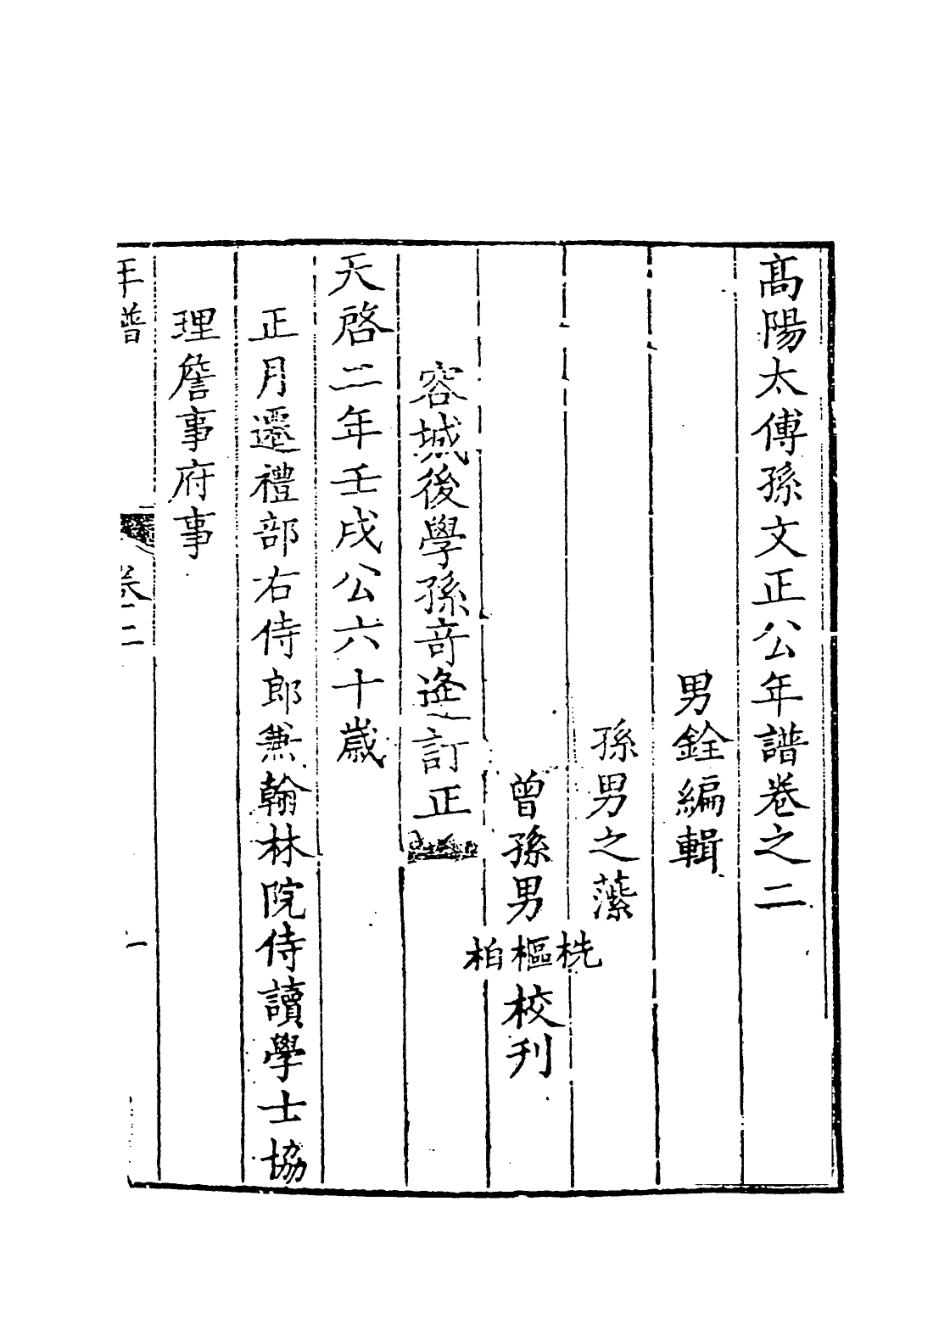 高陽太傅孫文正公年譜卷之二
男銓編輯
孫男之藻
曾孫男桄樞柏校刊
容城後學孫竒逢訂正
天啓二年壬戌公六十歲
正月遷禮部右侍郎兼翰林院侍讀學士協
理詹事府事
年譜 卷二 一